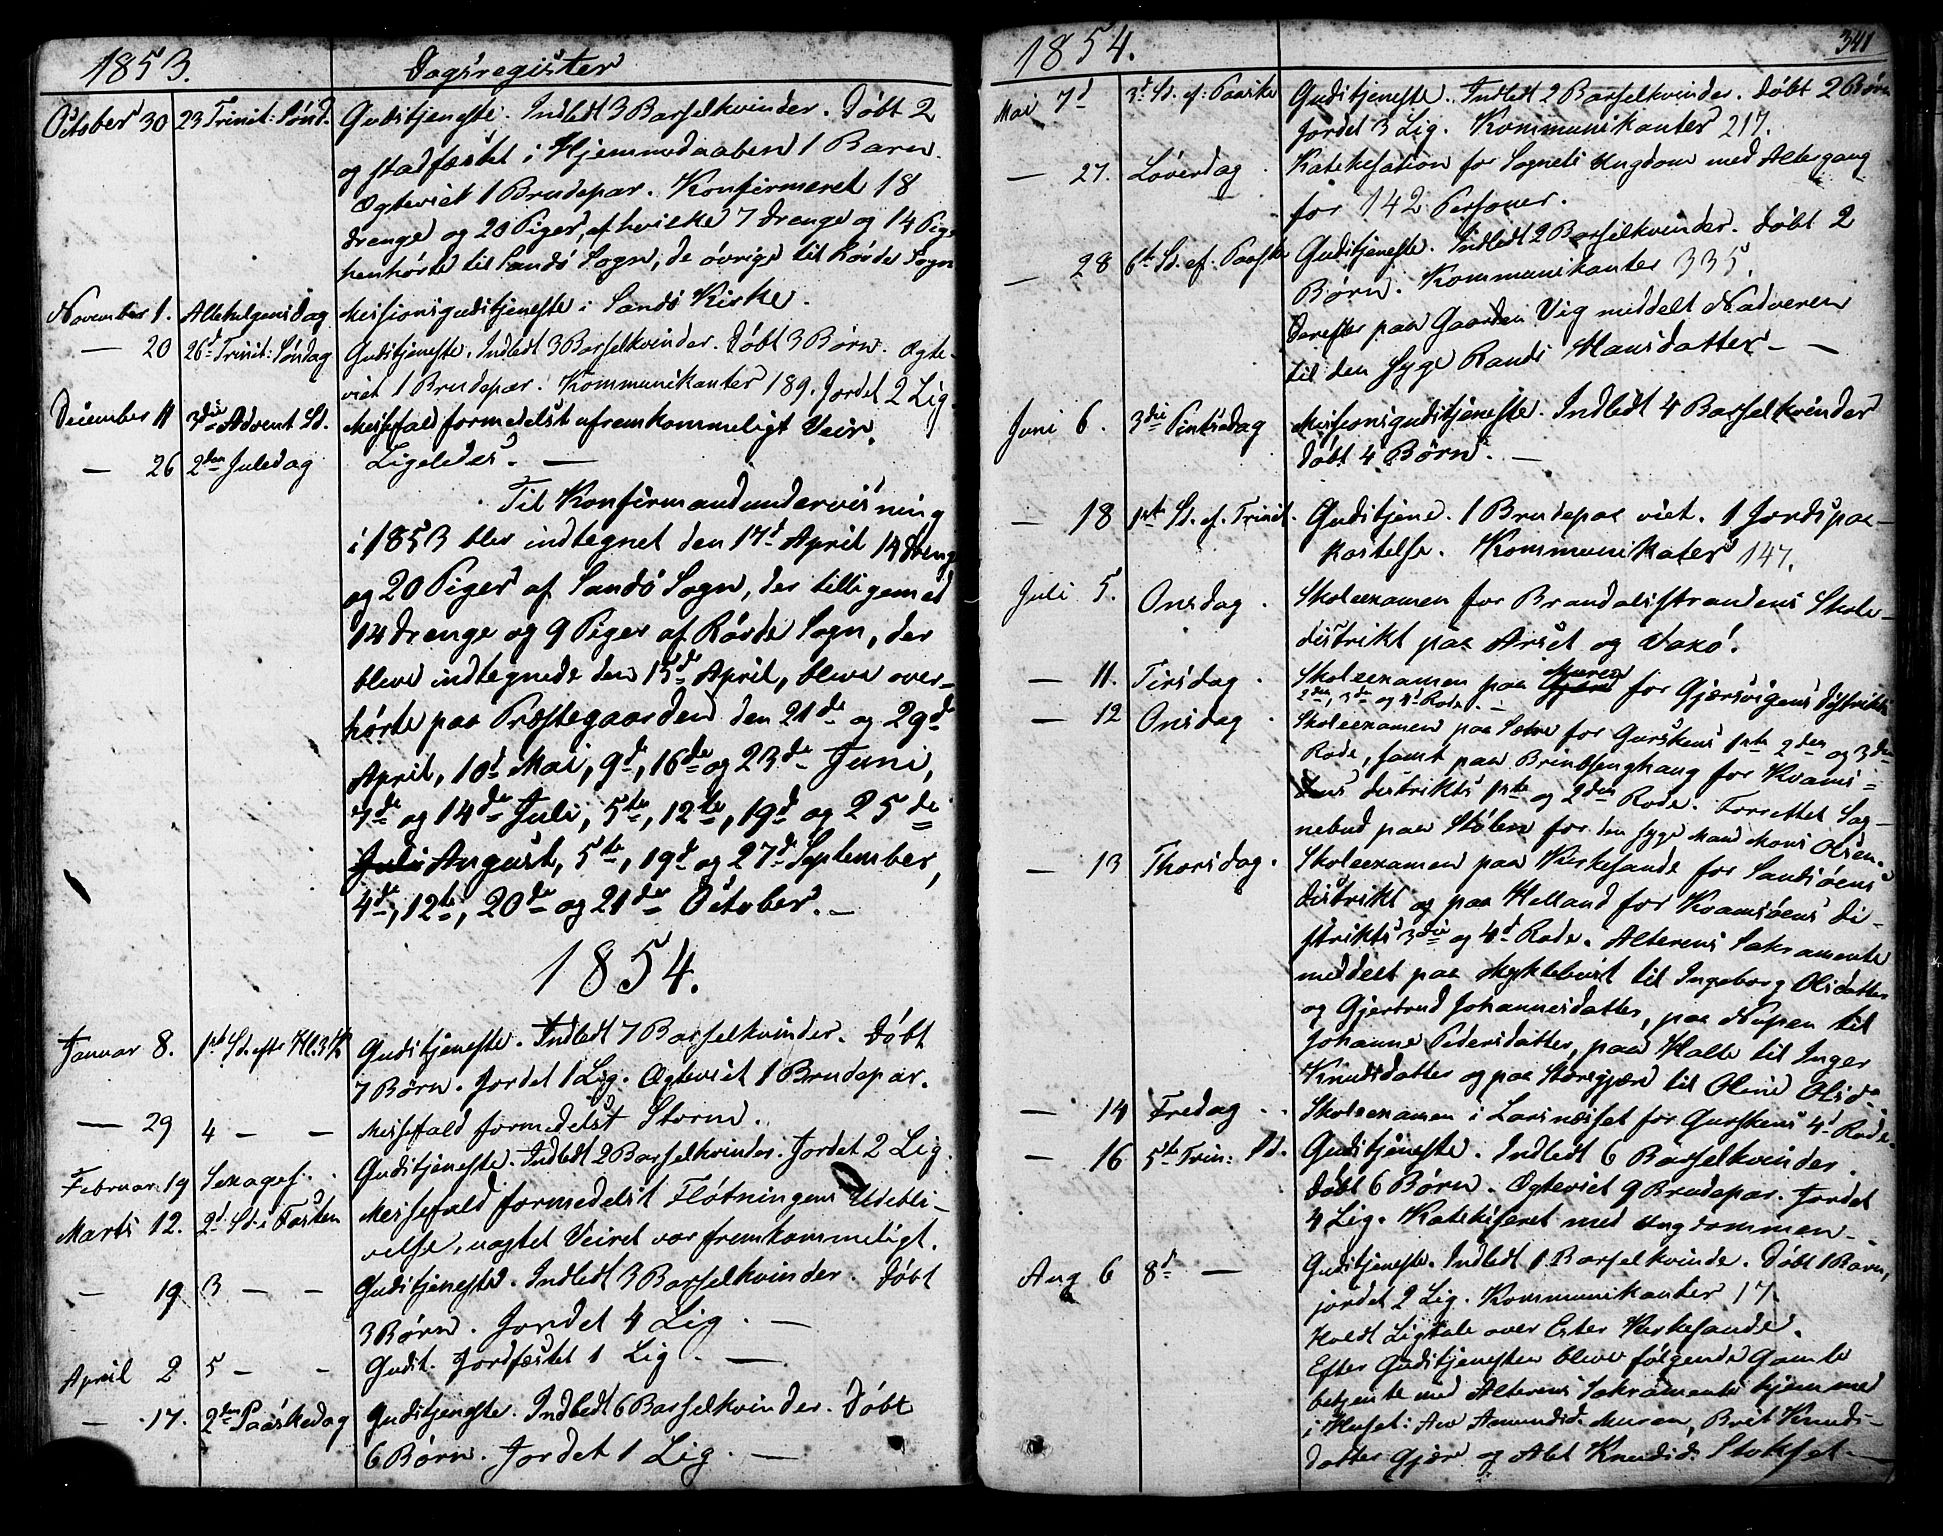 1853. Dagsregister
October 30 23 Trinit: Sønd. Gudstjeneste. Indledt 3 Barselkvinder. Døbt 2
og stadfæstet i Hjemmedaaben 1 Barn.
Ægteviet 1 Brudepar. Konfirmeret 18
Drenge og 20 Piger, af hvilke 7 Drenge og 14 Piger
henhørte til Sandø Sogn, de øvrige til Røvde Sogn
November 1. Allehelgensdag Messionsgudstjeneste i Sandø Kirke.
— 20 26d Trinit: Søndag Gudstjeneste. Indledt 3 Barselkvinder. Døbt 3 Børn. Ægte-
viet 1 Brudepar. Kommunikanter 189. Jordet 2 Lig.
December 11 3die Advent Sd. Messefald formedelst ufremkommeligt Veir.
— 26 2den Juledag Ligeledes. —
Til Konfirmandundervisning
i 1853 blev indtegnet den 17d April 14 Drenge
og 20 Piger af Sandø Sogn, der tilligemed
14 Drenge og 9 Piger af Røvde Sogn, der
bleve indtegnede den 15de April, bleve over-
hørte paa Præstegaarden den 21de og 29de
April, 10d Mai, 9d, 16de og 23de Juni,
7de og 14de Juli, 5te, 12te, 19d og 25de
Juli August, 5te, 19d og 27d September,
4de, 12te, 20de og 21de October. —
1854.
Januar 8. 1ste Sd. efter Hl. 3 K. Gudstjeneste. Indledt 7 Barselkvinder. Døbt
7 Børn. Jordet 1 Lig. Ægteviet 1 Brudepar.
— 29 4 — — Messefald formedelst Storm.
Februar 19 Sexages. Gudstjeneste. Indledt 2 Barselkvinder. Jordet 2 Lig.
Marts 12. 2d Sd. i Fasten Messefald formedelst Fløtningens Udebli-
velse, uagtet Veiret var fremkommeligt.
— 19 3 — — Gudstjeneste. Indledt 3 Barselkvinder. Døbt
3 Børn. Jordet 4 Lig. —
April 2 5 — — Gudst. Jordfæstet 1 Lig. —
— 17. 2den Paaskedag Gudstjeneste. Indledt 6 Barselkvinder. Døbt
6 Børn. Jordet 1 Lig. —
1854. 341
Mai 7d 3d Sd. ef. Paaske Gudstjeneste. Indledt 2 Barselkvinder. Døbt 2 Børn
Jordet 3 Lig. Kommunikanter 217.
— 27. Løverdag. Katekesation for Sognets Ungdom med Altergang
for 142 Personer.
— 28 6te Sd. ef. Paaske Gudstjeneste. Indledt 2 Barselkvinder. Døbt 2
Børn. Kommunikanter 335.
Derefter paa Gaarden Vig meddelt Nadveren
til den syge Randi Hansdatter — —
Juni 6. 3die Pintsedag Messionsgudstjeneste. Indledt 4 Barselkvinder
Døbt 4 Børn. —
— 18 1ste Sd. ef. Trinit. Gudstjene. 1 Brudepar viet. 1 Jordspaa-
kastelse. Kommunikater 147.
Juli 5. Onsdag. Skoleexamen for Brandalsstrandens Skole-
distrikt paa Arset og Voxø.
— 11. Tirsdag. Skoleexamen paa Muren for Gjærsvigens Distrikts
2den, 3de og 4d Rode. —
— 12 Onsdag. Skoleexamen paa Sætre for Gurskens 1ste 2den og 3den
Rode, samt paa Bringsenghaug for Kvams-
øens distrikts 1ste og 2den Rode. Forrettet Sog-
nebud paa Stølen for den syge Mand Mons Olsen.
— 13 Thorsdag. Skoleexamen paa Kirkesande for Sandsøens
Distrikt og paa Helland for Kvamsøens Di-
strikts 3die og 4d Rode. Alterens Sakramente
meddelt paa Myklebust til Ingeborg Olsdatter
og Gjertrud Johannesdatter, paa Nupen til
Johanne Pedersdatter, paa Halte til Inger
Knudsdatter og paa Storegjære til Oline Olsd.
— 14 Fredag.. Skoleexamen i Larsnæset for Gurskens 4d Rode.
— 16 5te Trin: Sd. Gudstjeneste. Indledt 6 Barselkvinder.
Døbt 6 Børn. Ægteviet 9 Brudepar. Jordet
4 Lig. Katekiseret med Ungdommen.
Aug 6 8d — Gudstjeneste. Indledt 1 Barselkvinde. Døbt 1 Barn,
jordet 2 Lig. Kommunikanter 17.
Holdt Ligtale over Ester Kirkesande.
Efter Gudstjenesten bleve følgende Gamle
betjente med Alterens Sakramente hjemme
i Huset: Ane Amundsd. Muren, Brit Knuds-
datter Gjære og Alet Knudsd. Stokset —